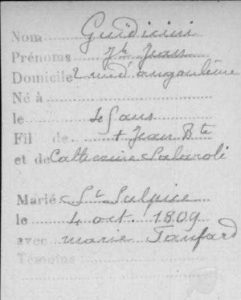 Nom Guidicini
Prénoms Jh Jean
Domicile 2 rue d'angoulème
Né à
le 40 ans
Fil de + Jean Bte
et de Catherine Salaroli
Marié St Sulpice
le 4 oct. 1809
avec marie Taufard
Témoins